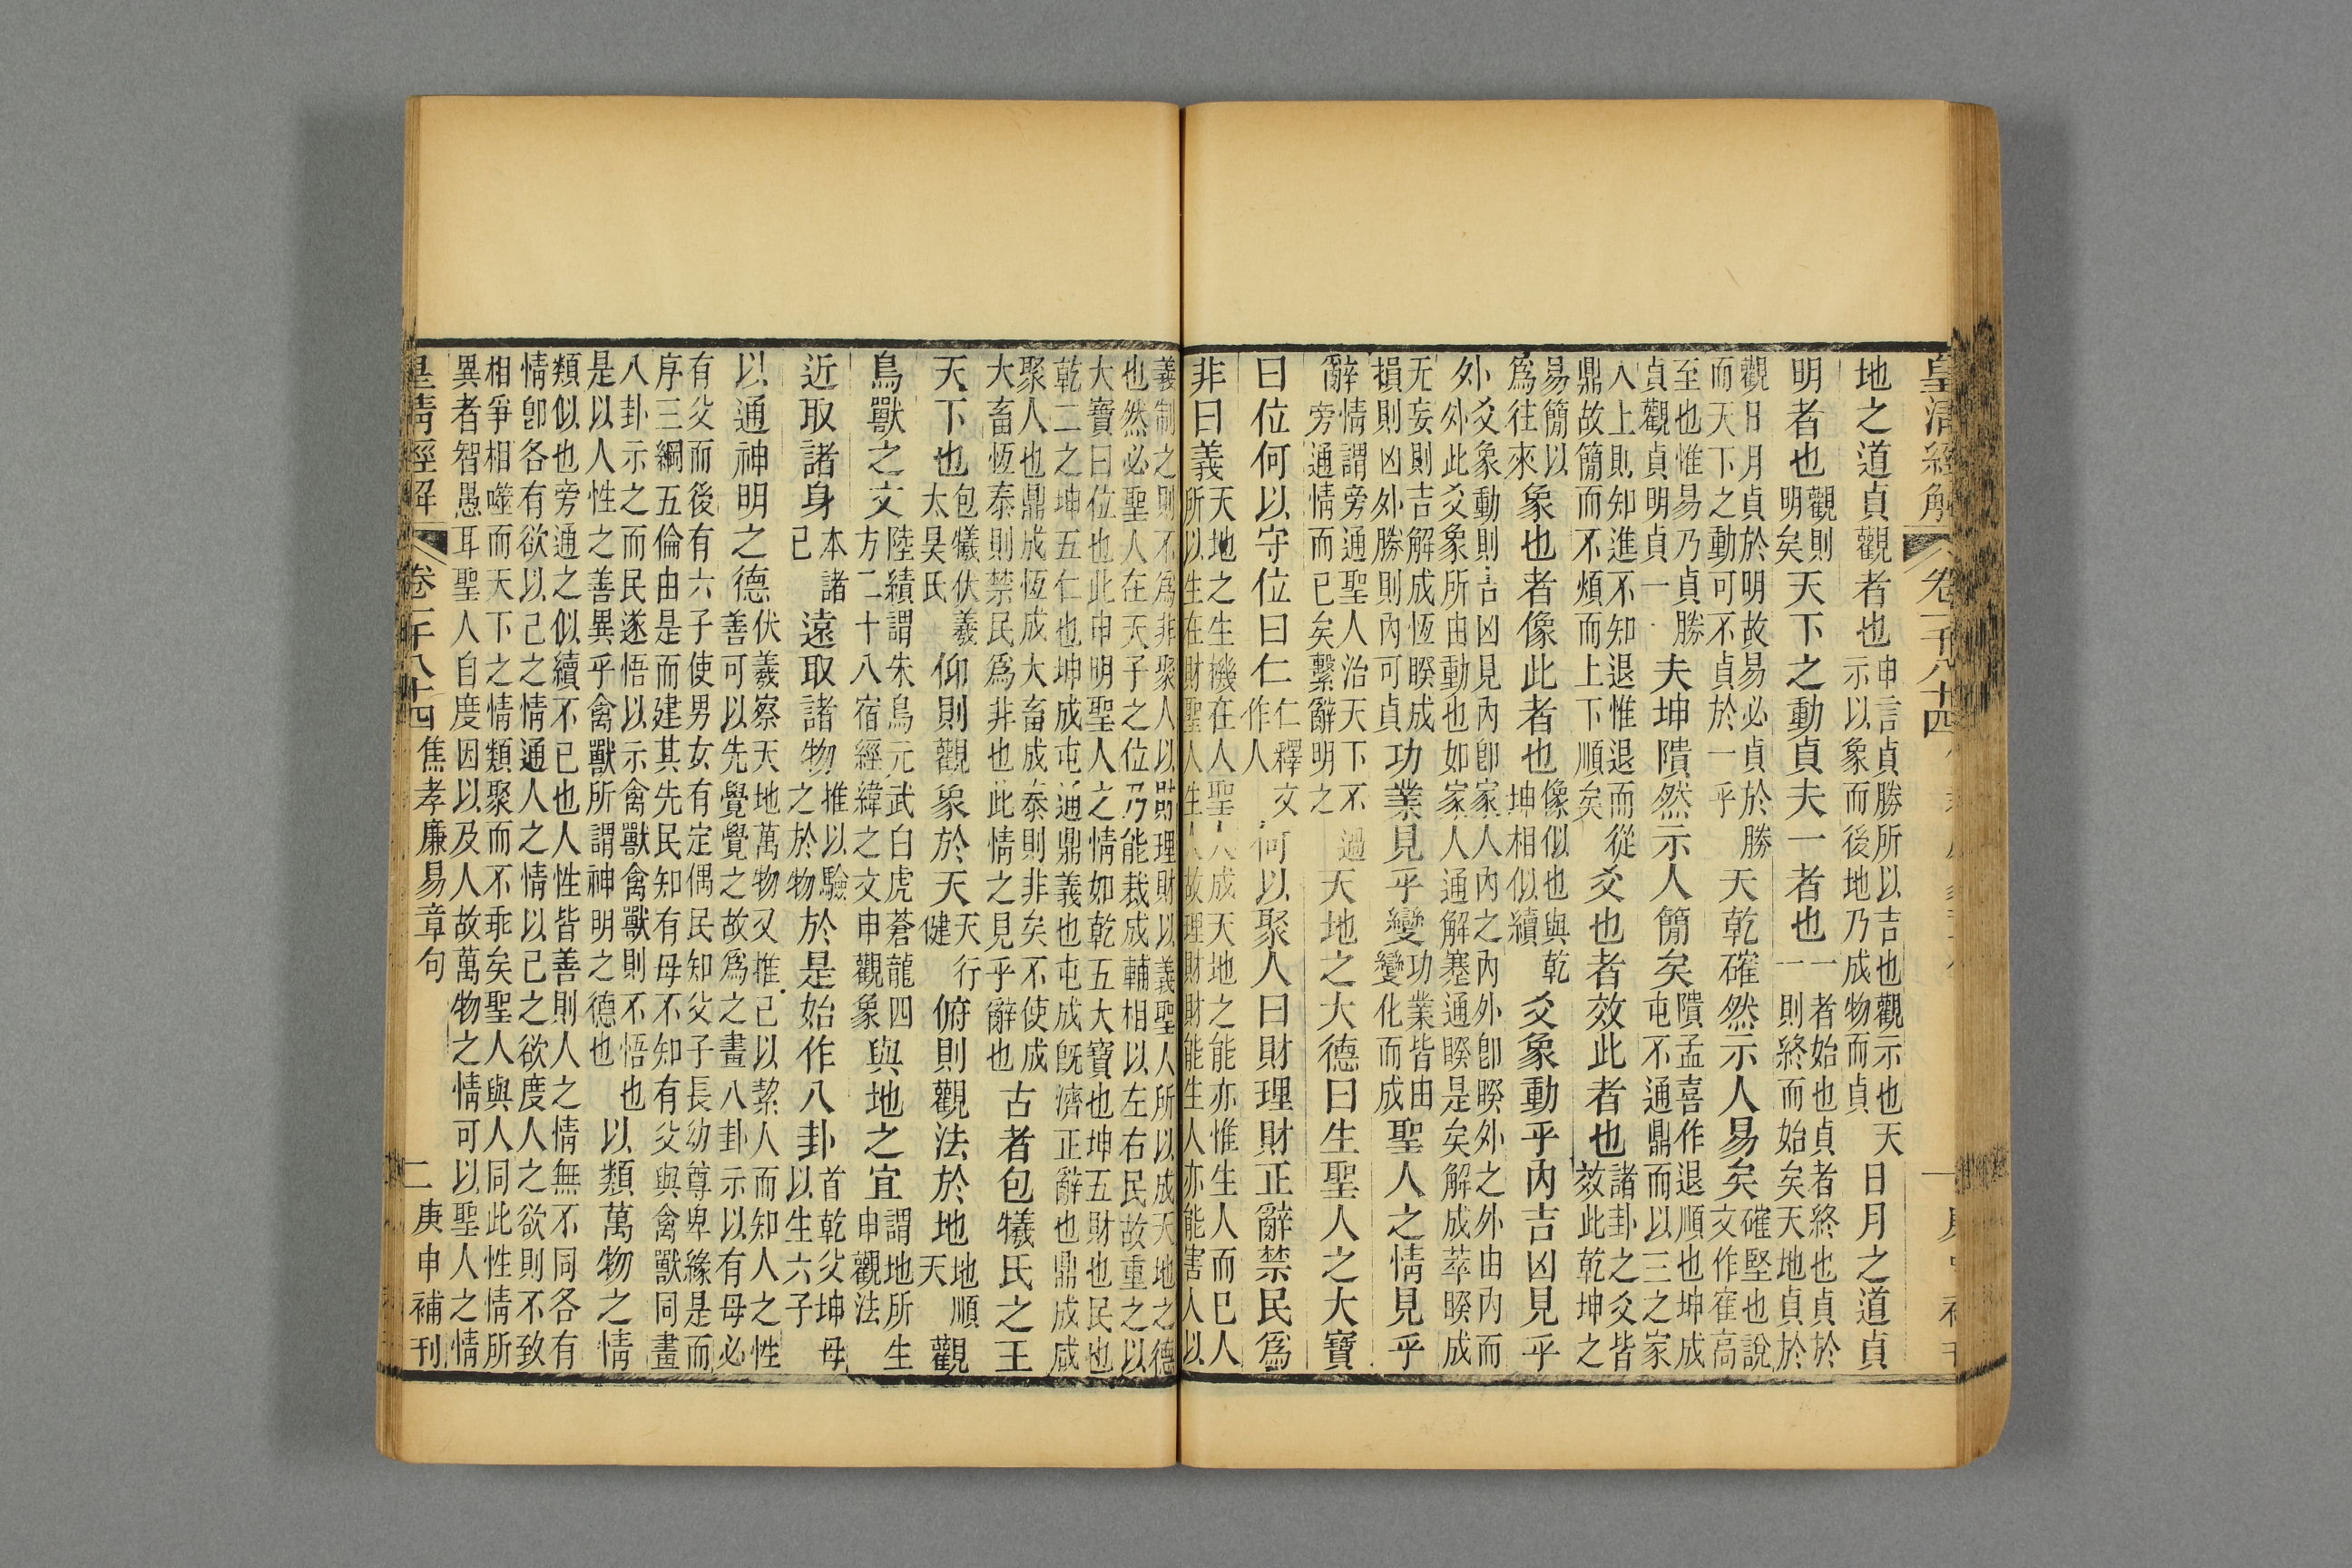 皇清經解 卷一千八十四
地之道貞觀者也申言貞勝所以吉也觀示也天示以象而後地乃成物而貞日月之道貞
明者也觀則明矣天下之動貞夫一者也一者始也貞者終也貞於一則終而始矣天地貞於
觀日月貞於明故易必貞於勝而天下之動可不貞於一乎天乾確然示人易矣確堅也說文作隺高
至也惟易乃貞勝貞觀貞明貞一夫坤隤然示人簡矣隤孟喜作退順也坤成屯不通鼎而以三之家
人上則知進不知退惟退而從鼎故簡而不煩而上下順矣爻也者效此者也諸卦之爻皆效此乾坤之
易簡以爲往來象也者像此者也像似也與乾坤相似續爻象動乎內吉凶見乎
外爻象動則言凶見內卽家人內之內外卽睽外之外由內而外此爻象所由動也如家人通解塞通睽是矣解成萃睽成
无妄則吉解成恆睽成損則凶外勝則內可貞功業見乎變功業皆由變化而成聖人之情見乎
辭情謂旁通聖人治天下不過旁通情而已矣繫辭明之天地之大德曰生聖人之大寶
曰位何以守位曰仁仁釋文作人何以聚人曰財理財正辭禁民爲
非曰義天地之生機在人聖人成天地之能亦惟生人而已人所以生在財聖人生人故理財財能生人亦能害人以
義制之則不爲非聚人以財理財以義聖人所以成天地之德也然必聖人在天子之位乃能裁成輔相以左右民故重之以
大寶曰位也此申明聖人之情如乾五大寶也坤五財也民也乾二之坤五仁也坤成屯通鼎義也屯成旣濟正辭也鼎成咸
聚人也鼎成恆成大畜成泰則非矣不使成大畜恆泰則禁民爲非也此情之見乎辭也古者包犧氏之王
天下也包犧伏羲太昊氏仰則觀象於天天行健俯則觀法於地地順天觀
鳥獸之文陸績謂朱鳥元武白虎蒼龍四方二十八宿經緯之文申觀象與地之宜謂地所生申觀法
近取諸身本諸己遠取諸物推以驗之於物於是始作八卦首乾父坤母以生六子
以通神明之德伏羲察天地萬物又推己以絜人而知人之性善可以先覺覺之故爲之畫八卦示以有母必
有父而後有六子使男女有定偶民知父子長幼尊卑緣是而序三綱五倫由是而建其先民知有母不知有父與禽獸同畫
八卦示之而民遂悟以示禽獸禽獸則不悟也是以人性之善異乎禽獸所謂神明之德也以類萬物之情
類似也旁通之似續不已也人性皆善則人之情無不同各有情卽各有欲以己之情通人之情以己之欲度人之欲則不致
相爭相噬而天下之情類聚而不乖矣聖人與人同此性情所異者智愚耳聖人自度因以及人故萬物之情可以聖人之情
皇清經解 卷一千八十四 焦孝廉易章句 二 庚申補刊